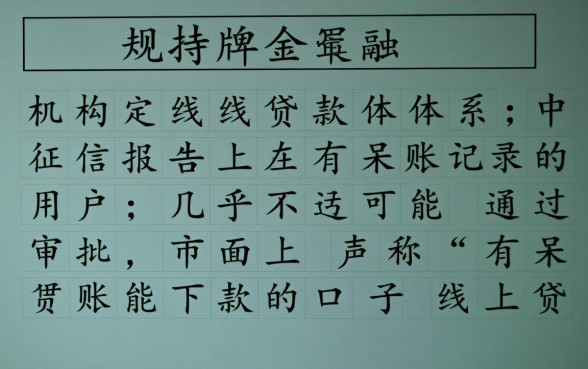 规持牌金融
机构定线线贷款体体系；中
征信报告上在有呆账记录的
用户；几乎不适可能 通过
审批，市面上 声称“有呆
账能下款的口子 线上贷